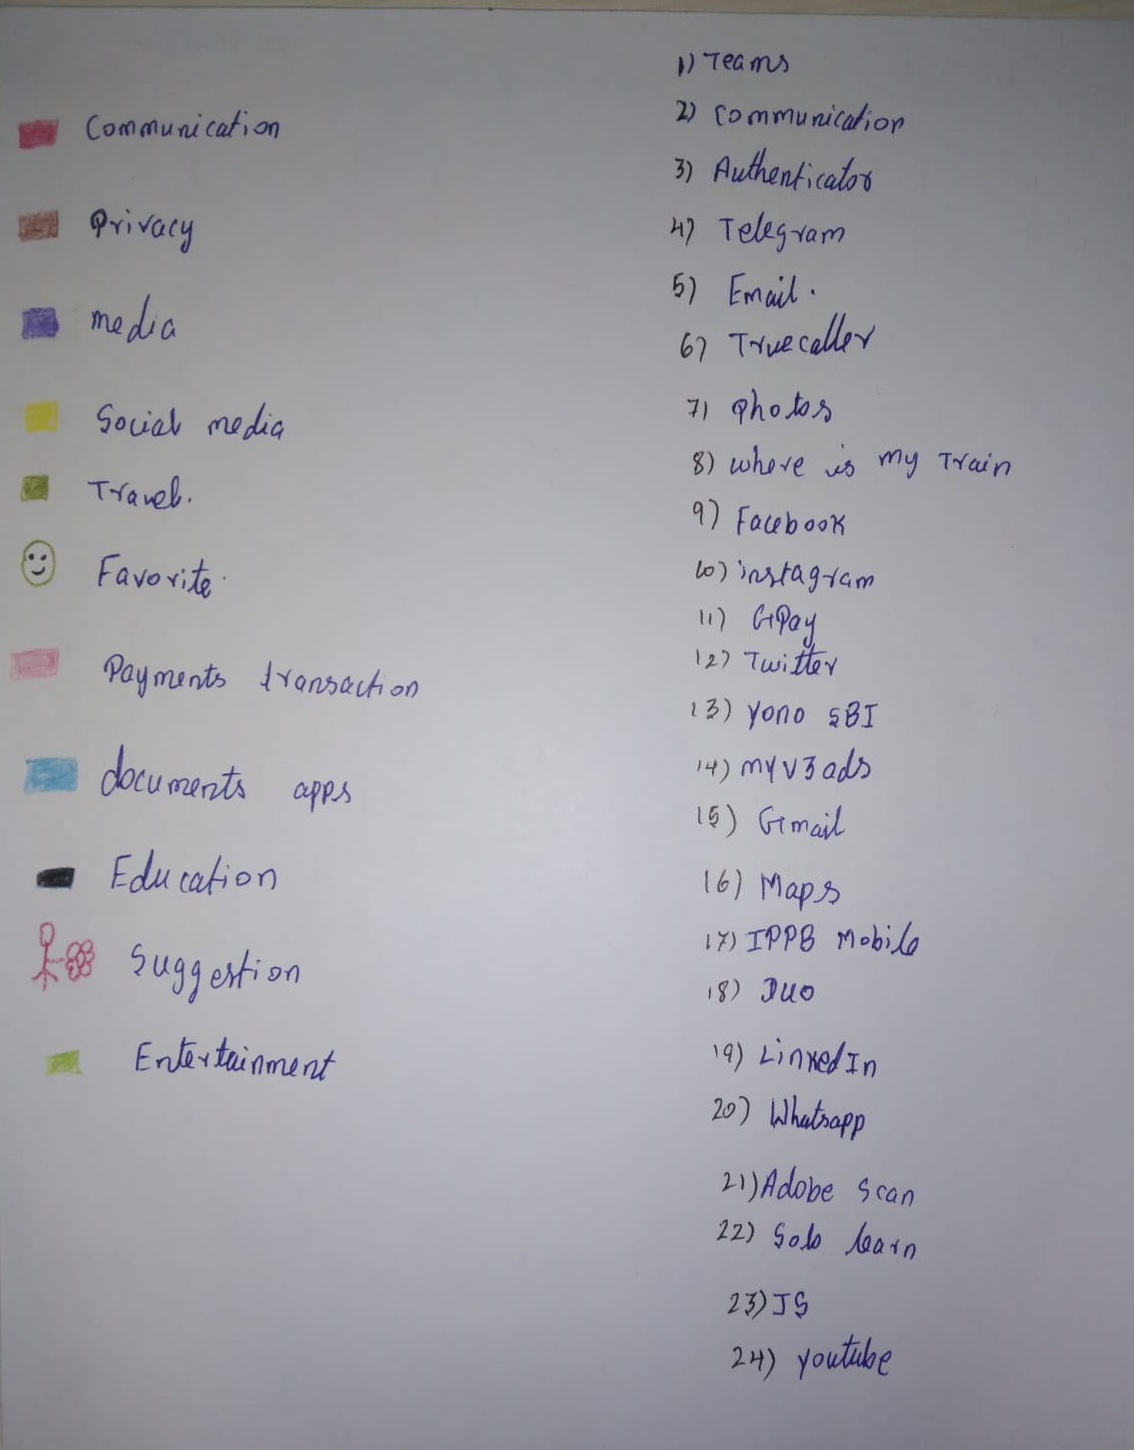 Communication
Privacy
media
Social media
Travel.
Favorite.
Payments transaction
documents apps
Education
Suggestion
Entertainment
1) Teams
2) Communication
3) Authenticator
4) Telegram
5) Email.
6) Truecaller
7) Photos
8) where is my Train
9) Facebook
10) instagram
11) GPay
12) Twitter
13) Yono SBI
14) myv3ads
15) Gmail
16) Maps
17) IPPB Mobile
18) Duo
19) LinkedIn
20) Whatsapp
21) Adobe Scan
22) Solo learn
23) JS
24) youtube